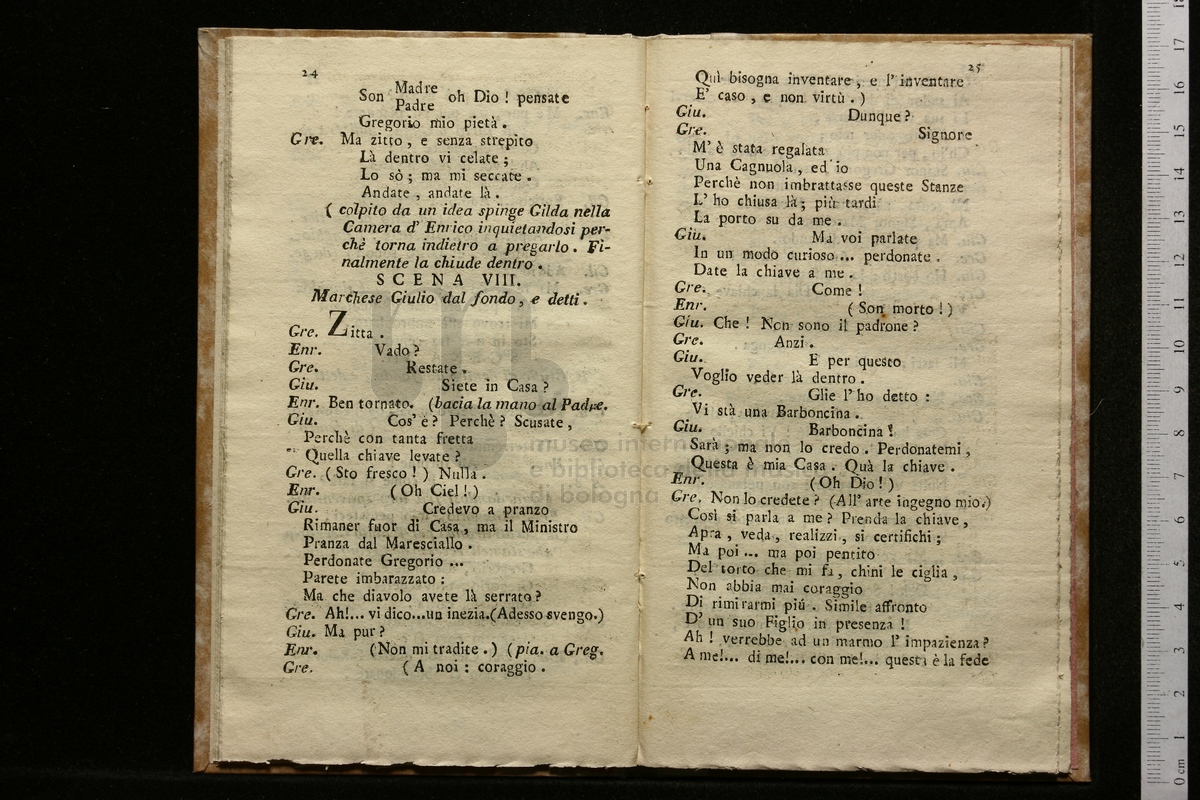 24
Son Madre oh Dio ! pensate
Padre
Gregorio mio pietà .
Gre. Ma zitto , e senza strepito
Là dentro vi celate ;
Lo sò ; ma mi seccate .
Andate , andate là .
( colpito da un idea spinge Gilda nella
Camera d' Enrico inquietandosi per-
chè torna indietro a pregarlo . Fi-
nalmente la chiude dentro .
SCENA VIII.
Marchese Giulio dal fondo , e detti .
Gre. Zitta .
Enr. Vado ?
Gre. Restate .
Giu. Siete in Casa ?
Enr. Ben tornato. (bacia la mano al Padre.
Giu. Cos' è ? Perchè ? Scusate ,
Perchè con tanta fretta
Quella chiave levate ?
Gre. ( Sto fresco ! ) Nulla .
Enr. ( Oh Ciel ! )
Giu. Credevo a pranzo
Rimaner fuor di Casa , ma il Ministro
Pranza dal Maresciallo .
Perdonate Gregorio ...
Parete imbarazzato :
Ma che diavolo avete là serrato ?
Gre. Ah!... vi dico...un inezia.(Adesso svengo.)
Giu. Ma pur ?
Enr. (Non mi tradite . ) (pia. a Greg.
Gre. ( A noi : coraggio .
25
Quì bisogna inventare , e l' inventare
E' caso , e non virtù . )
Giu. Dunque ?
Gre. Signore
M' è stata regalata
Una Cagnuola , ed io
Perchè non imbrattasse queste Stanze
L' ho chiusa là ; più tardi
La porto su da me .
Giu. Ma voi parlate
In un modo curioso ... perdonate .
Date la chiave a me .
Gre. Come !
Enr. ( Son morto ! )
Giu. Che ! Non sono il padrone ?
Gre. Anzi .
Giu. E per questo
Voglio veder là dentro .
Gre. Glie l' ho detto :
Vi stà una Barboncina .
Giu. Barboncina !
Sarà ; ma non lo credo . Perdonatemi ,
Questa è mia Casa . Quà la chiave .
Enr. ( Oh Dio ! )
Gre. Non lo credete ? (All' arte ingegno mio.)
Così si parla a me ? Prenda la chiave ,
Apra , veda , realizzi , si certifichi ;
Ma poi ... ma poi pentito
Del torto che mi fa , chini le ciglia ,
Non abbia mai coraggio
Di rimirarmi più . Simile affronto
D' un suo Figlio in presenza !
Ah ! verrebbe ad un marmo l' impazienza ?
A me!... di me!... con me!... questa è la fede
museo internazionale
e biblioteca della musica
di bologna
0 cm 1 2 3 4 5 6 7 8 9 10 11 12 13 14 15 16 17 18